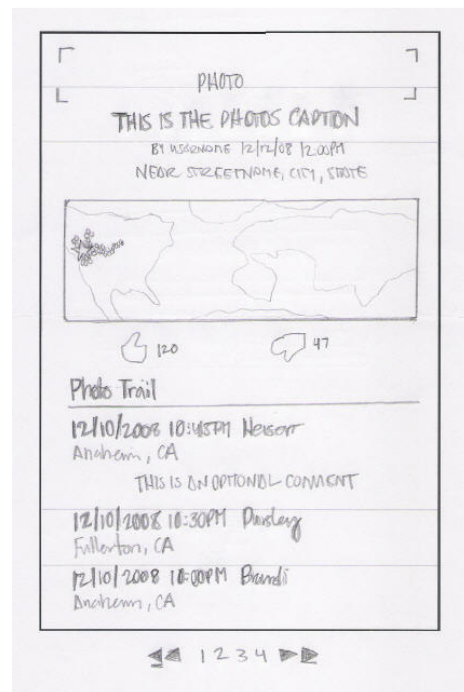 PHOTO
THIS IS THE PHOTOS CAPTION
BY USERNAME 12/12/08 12:00PM
NEAR STREETNAME, CITY, STATE
120
47
Photo Trail
12/10/2008 10:45PM
Anaheim, CA
THIS IS AN OPTIONAL COMMENT
12/10/2008 10:30PM
Fullerton, CA
12/10/2008 10:00PM Brandi
Anaheim, CA
1 2 3 4